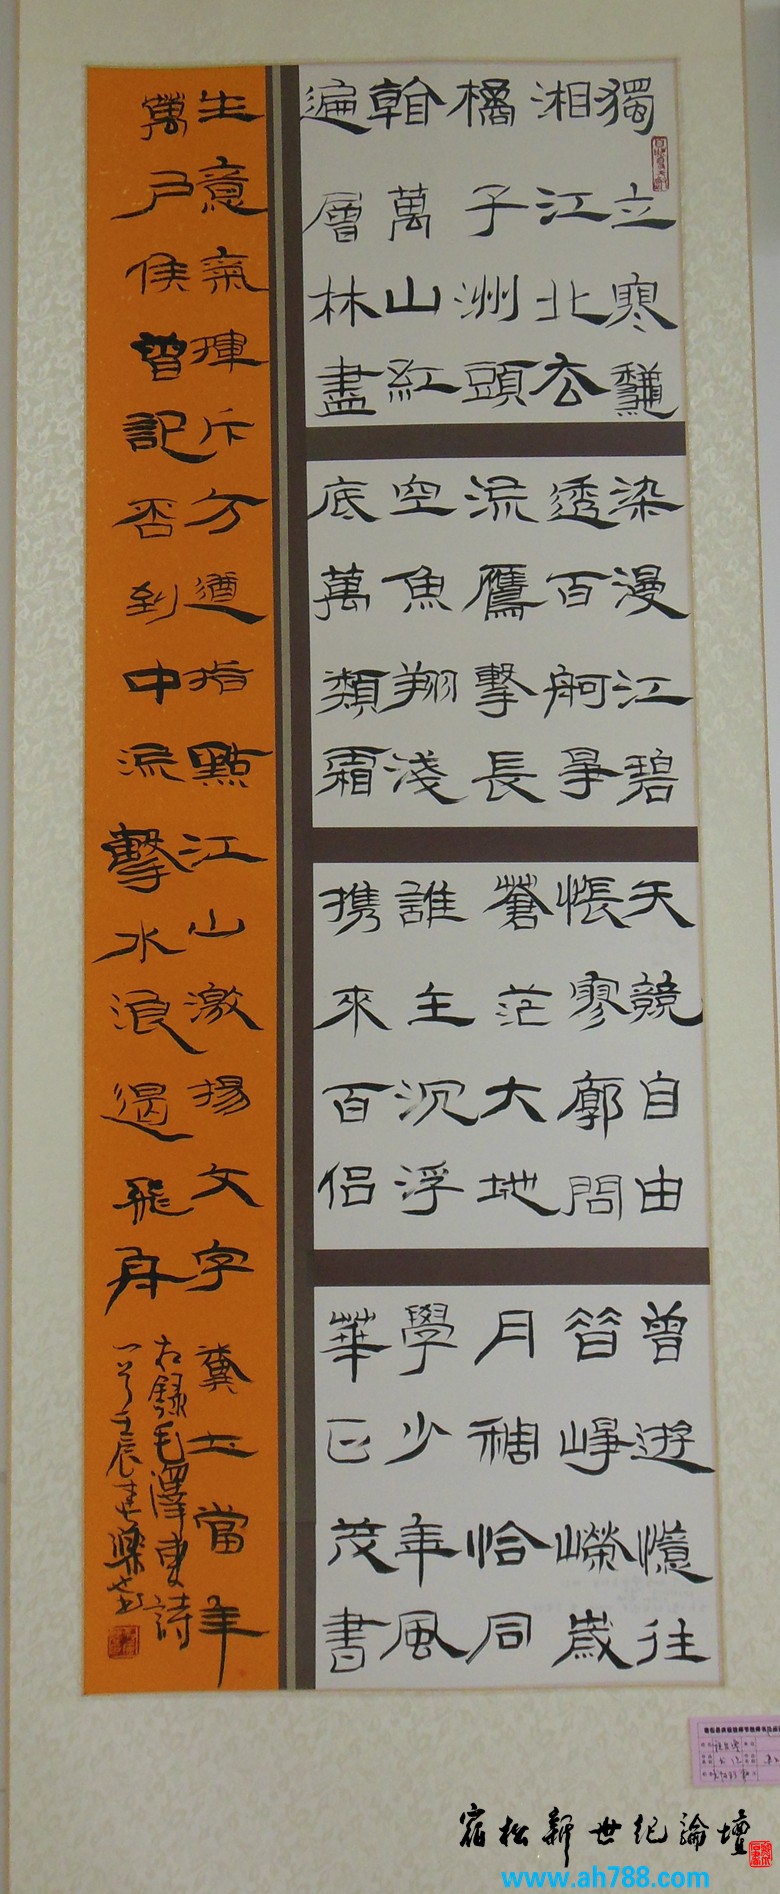 獨立寒龝
湘江北去
橘子洲頭
看萬山紅
遍層林盡
染漫江碧
透百舸爭
流鷹擊長
空魚翔淺
底萬類霜
天競自由
悵寥廓問
蒼茫大地
誰主沉浮
携來百侶
曾遊憶往
昔崢嶸歲
月稠恰同
學少年風
華正茂書
生意氣揮斥方遒指點江山激揚文字糞土當年
萬戶侯曾記否到中流擊水浪遏飛舟
右錄毛澤東詩
一首壬辰春樂
宿松新世纪論壇
www.ah788.com